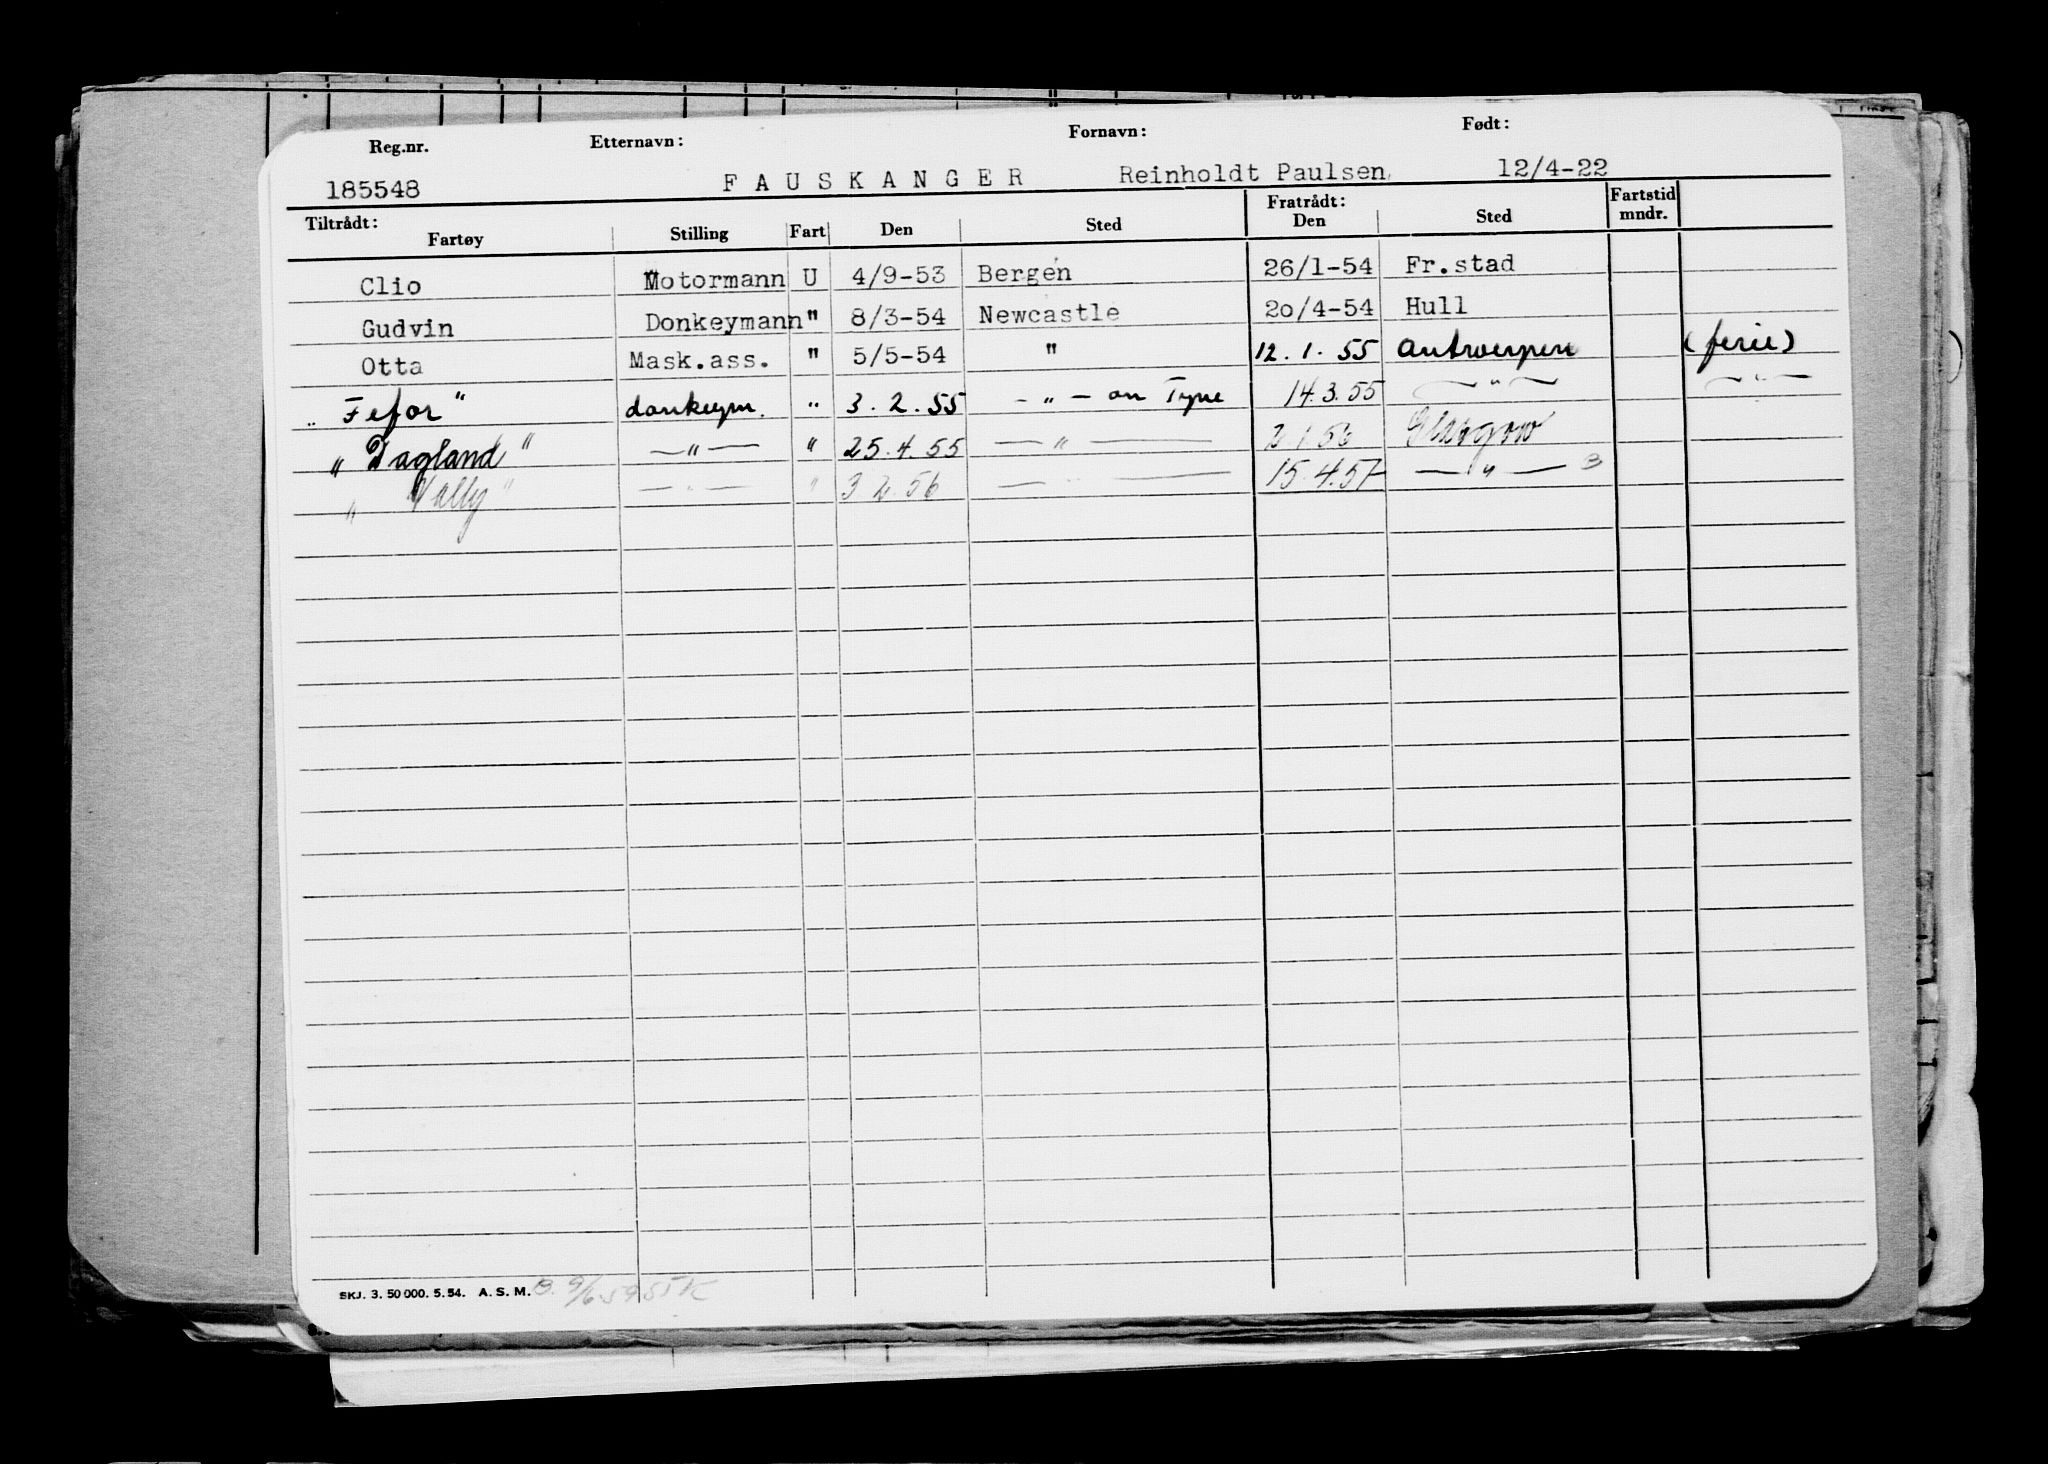 Reg.nr. Etternavn: Fornavn: Født:
185548 FAUSKANGER Reinholdt Paulsen, 12/4-22
Tiltrådt: Fratrådt: Fartstid
Fartøy Stilling Fart Den Sted Den Sted mndr.
Clio Motormann U 4/9-53 Bergen 26/1-54 Fr.stad
Gudvin Donkeymann " 8/3-54 Newcastle 20/4-54 Hull
Otta Mask.ass. " 5/5-54 " 12.1.55 Antwerpen (ferie)
"Fefor" donkeym. " 3.2.55 - " - on Tyne 14.3.55 — " — — " —
"Dagland" — " — " 25.4.55 — " — Glasgow
" Vally" — " — " 3 2 56 — " — 15.4.57 — " — B
SKJ. 3. 50 000. 5. 54. A. S. M.